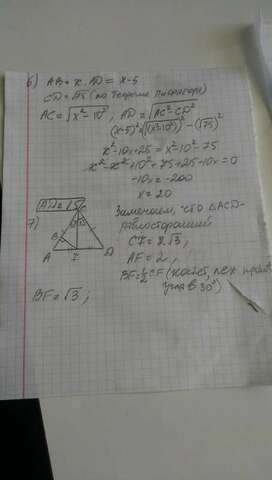 6) AB = x, AD = x-5
CD = √75 (по теореме Пифагора)
AC = √x²-10², AD = √AC²-CD²
(x-5)² = (√(x²-10²))² - (√75)²
x²-10x+25 = x²-10²-75
x²-x²+10²+75+25-10x=0
-10x = -200
x = 20
7)
B
A
F
D
Замечаем, что △ACD-
равносторонний
CF = 2√3;
AF = 2;
BF = ½CF (катет, леж. против
угла в 30°)
BF = √3;